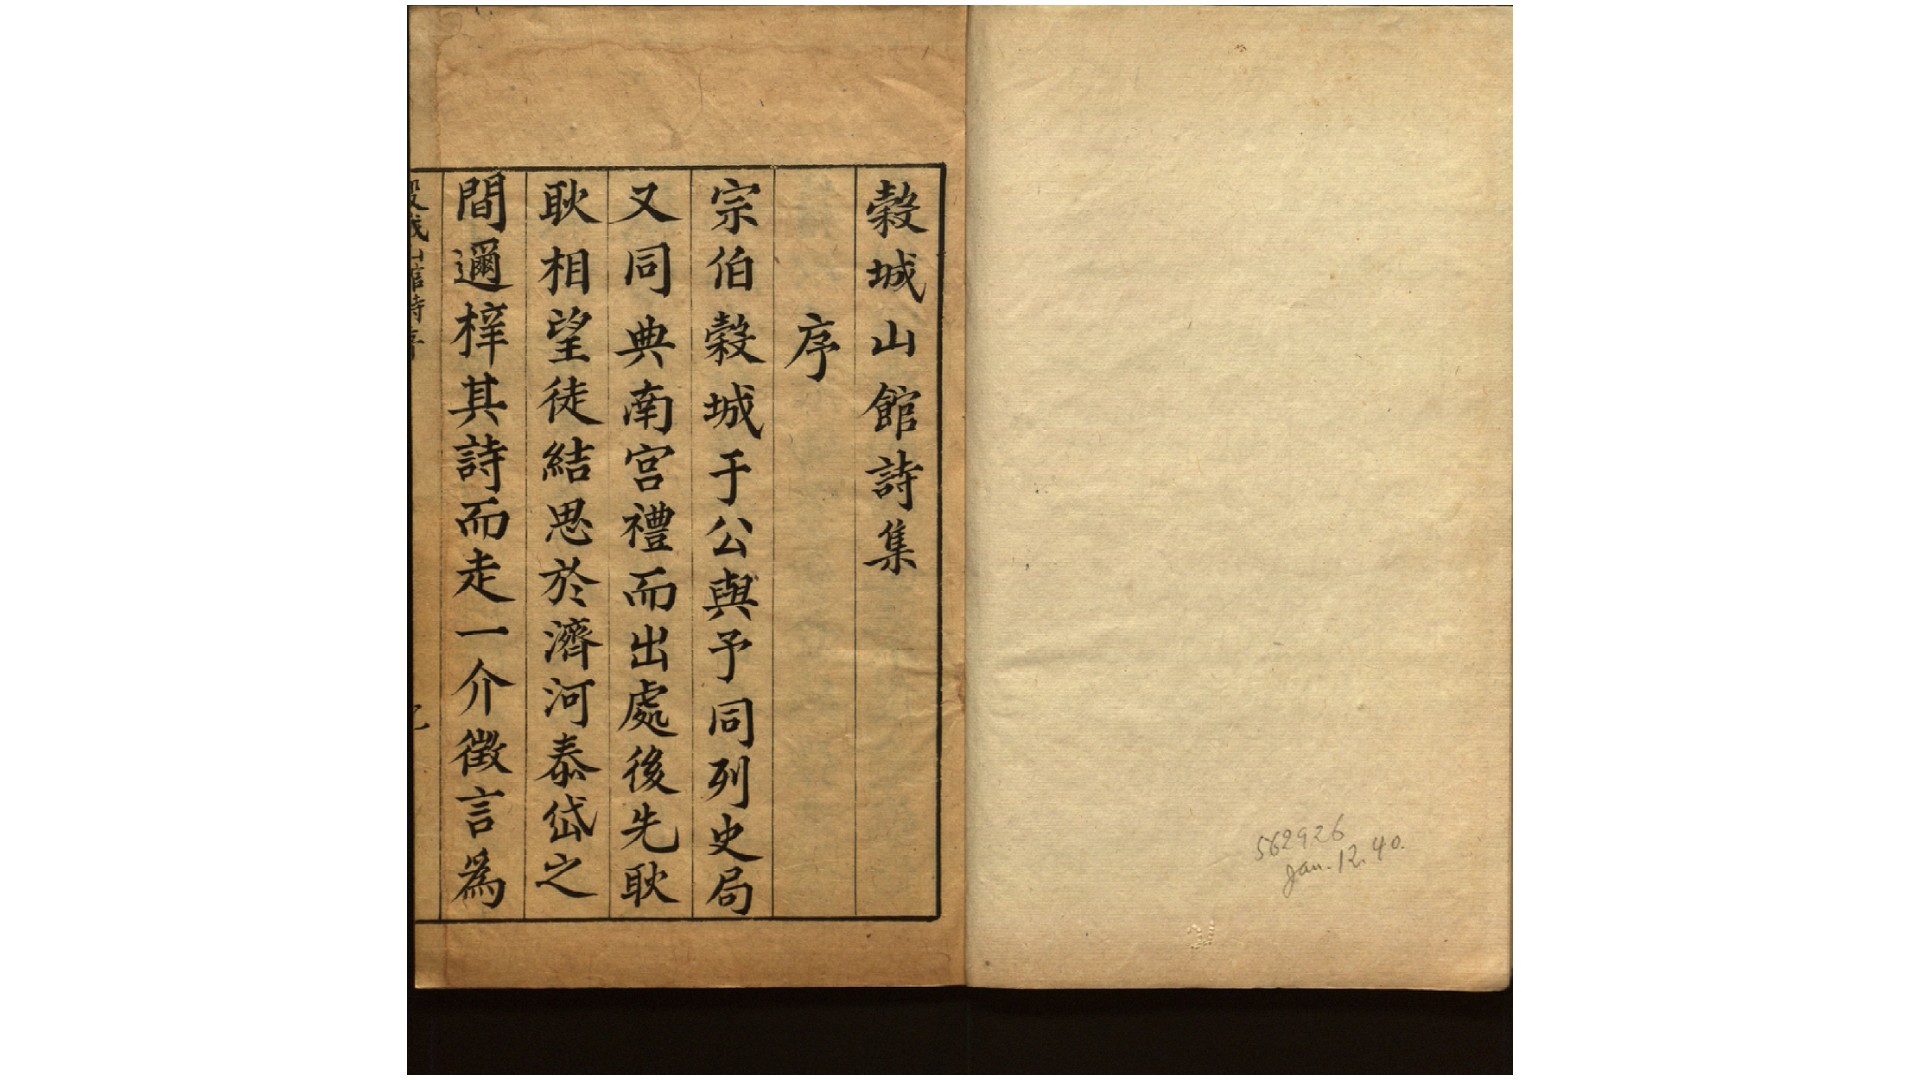 穀城山館詩集
序
宗伯穀城于公與予同列史局
又同典南宮禮而出處後先耿
耿相望徒結思於濟河泰岱之
間邇梓其詩而走一介徵言爲
穀城山館詩序
562926
Jan. 12. 40.